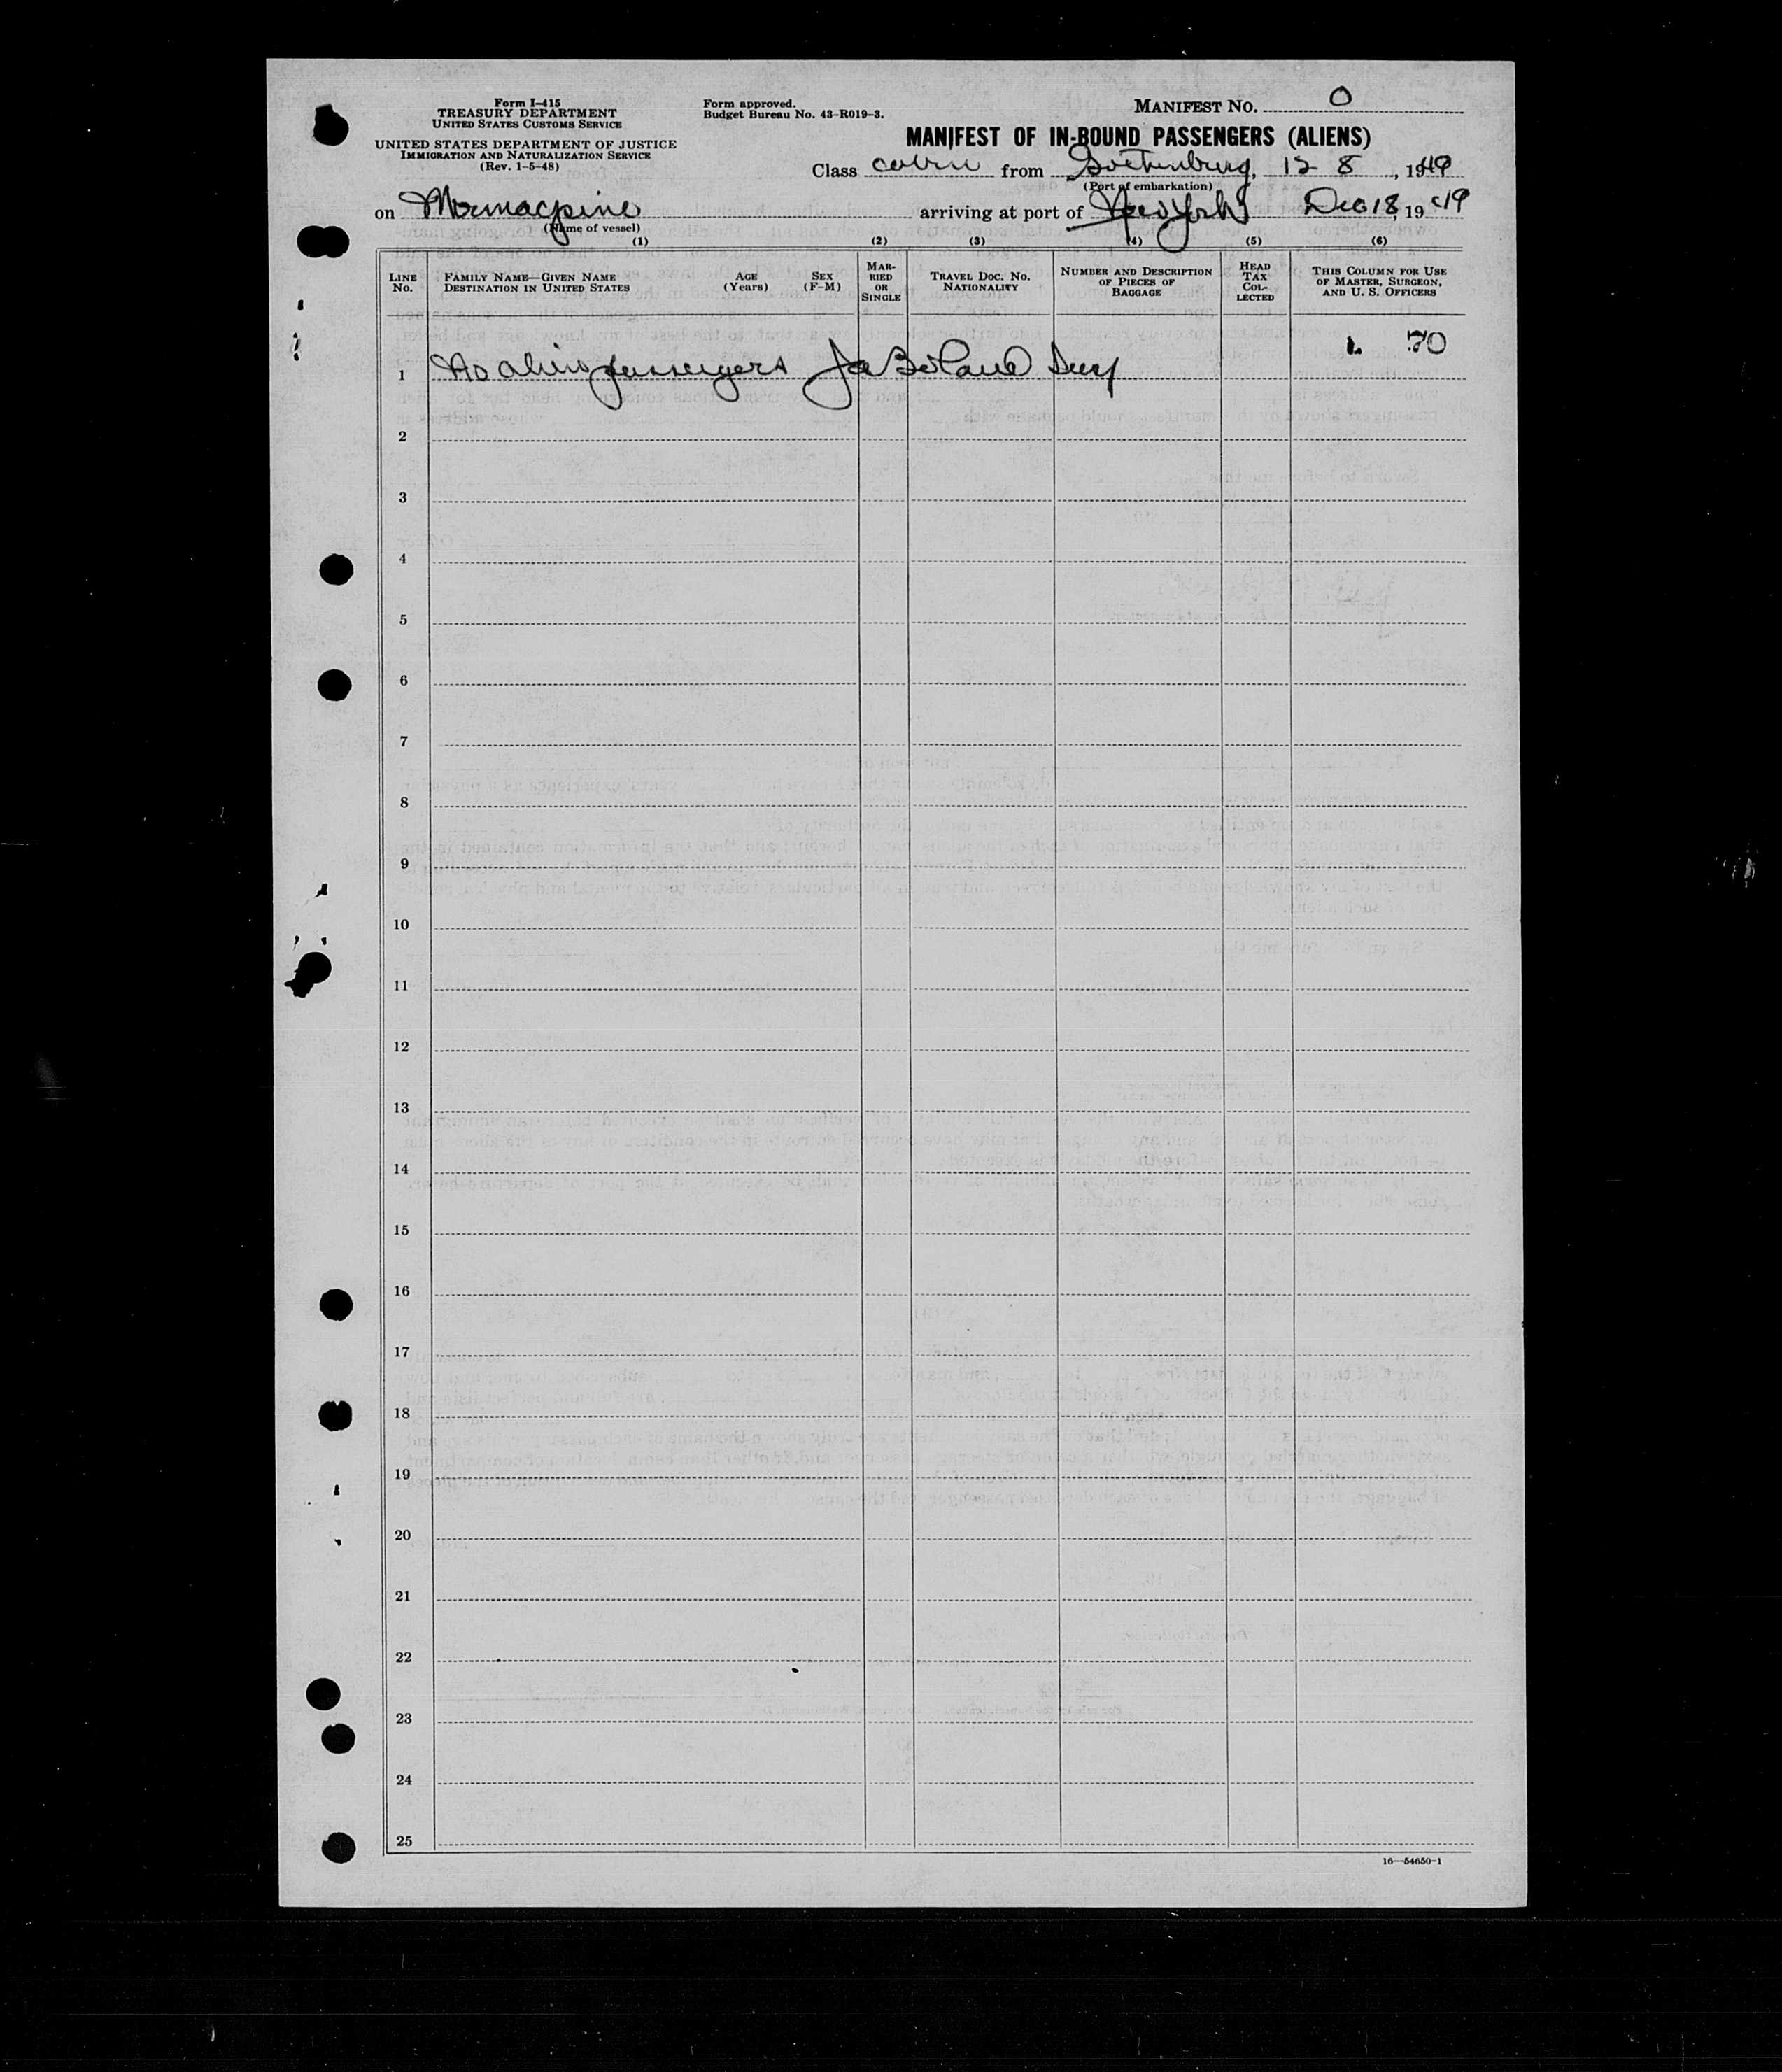 Form I-415
TREASURY DEPARTMENT
UNITED STATES CUSTOMS SERVICE
UNITED STATES DEPARTMENT OF JUSTICE
IMMIGRATION AND NATURALIZATION SERVICE
(Rev. 1-5-48)
Form approved.
Budget Bureau No. 43-R019-3.
MANIFEST NO. 0
MANIFEST OF IN-BOUND PASSENGERS (ALIENS)
Class cabin from Gothenburg, 12 8, 1949
(Port of embarkation)
on Mormacpine arriving at port of New York Dec 18, 1949
(Name of vessel)
(1) (2) (3) (4) (5) (6)
LINE NO.
FAMILY NAME—GIVEN NAME
DESTINATION IN UNITED STATES
AGE (Years)
SEX (F-M)
MARRIED OR SINGLE
TRAVEL DOC. NO.
NATIONALITY
NUMBER AND DESCRIPTION OF PIECES OF BAGGAGE
HEAD TAX COLLECTED
THIS COLUMN FOR USE OF MASTER, SURGEON, AND U. S. OFFICERS
70
1 No alien passengers
2
3
4
5
6
7
8
9
10
11
12
13
14
15
16
17
18
19
20
21
22
23
24
25
16—54650-1